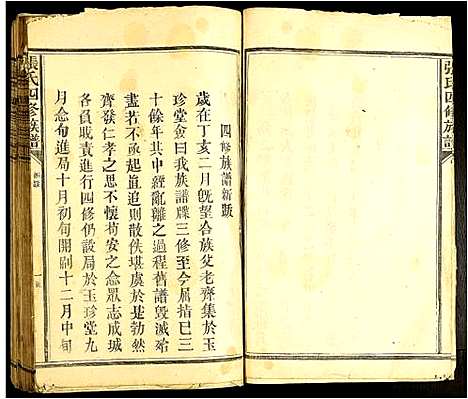 張氏四修族譜
四修族譜新跋
歲在丁亥二月旣望合族父老齊集於玉
珍堂僉曰我族譜牒三修至今屈指已三
十餘年其中經亂離之過程舊譜毁滅殆
盡若不亟起直追則散佚堪虞於是勃然
齊發仁孝之思不懷苟安之念眾志成城
各房負責進行四修仍設局於玉珍堂九
月念旬進局十月初旬開剧十二月中旬
張氏四修族譜